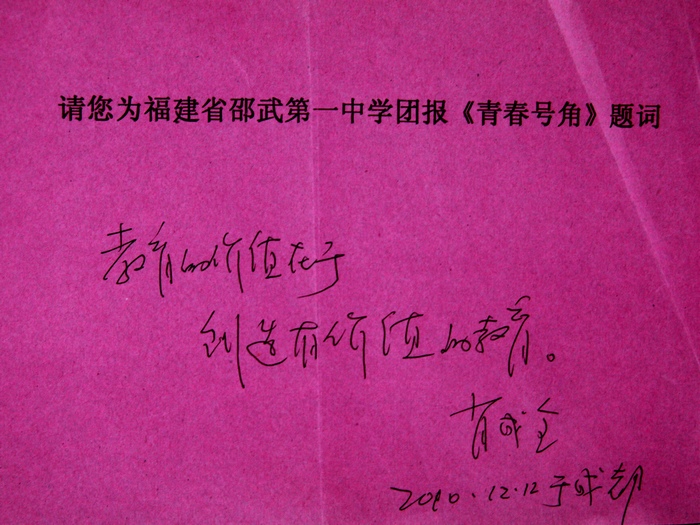 请您为福建省邵武第一中学团报《青春号角》题词
教育的价值在于
创造有价值的教育。
肖成全
2010.12.12于成都